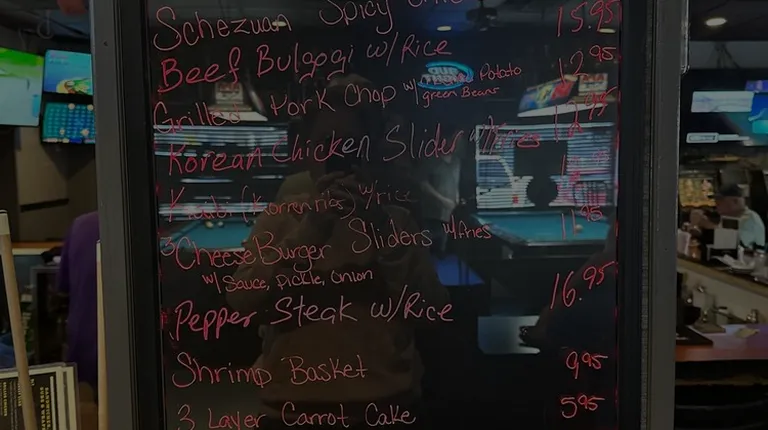 Schezuan Spicy 15.95
Beef Bulgogi w/Rice 12.95
Grilled Pork Chop w/ Potato
green Beans
Korean Chicken Slider w/fries
w/rice
3 CheeseBurger Sliders w/fries 11.95
w/ Sauce, Pickle, Onion
Pepper Steak w/Rice 16.95
Shrimp Basket 9.95
3 Layer Carrot Cake 5.95